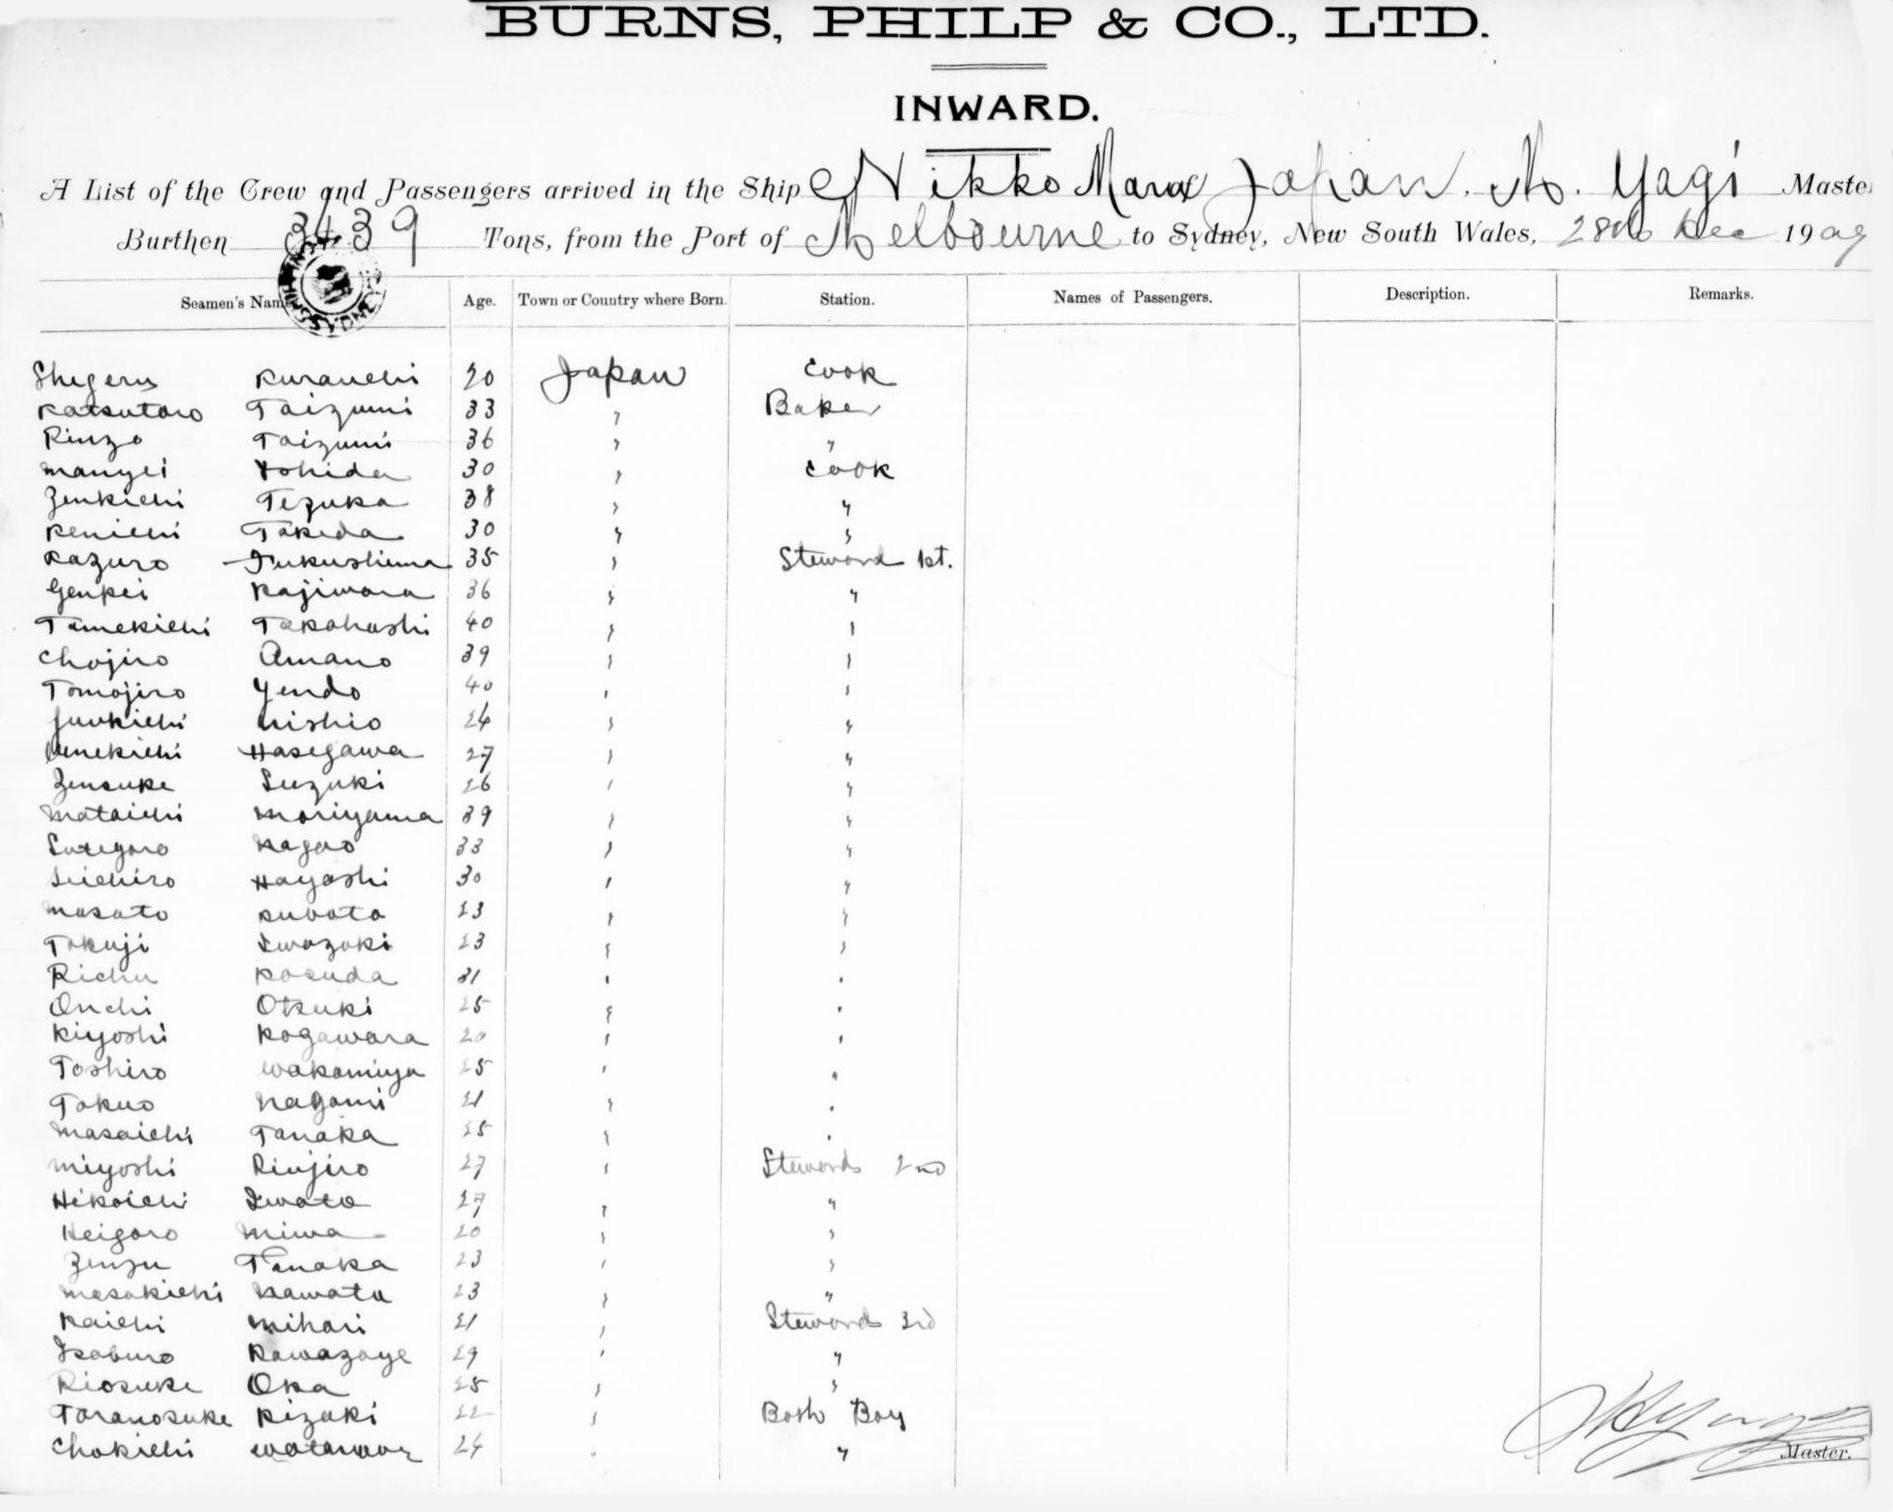 BURNS, PHILP & CO., LTD.
INWARD.
A List of the Crew and Passengers arrived in the Ship Nikko Maru Japan, Yagi Master
Burthen 3439 Tons, from the Port of Melbourne to Sydney, New South Wales, 28th Dec 1909
Seamen's Names Age. Town or Country where Born. Station. Names of Passengers. Description. Remarks.
Shigeru Kurauchi 20 Japan Cook
Katsutaro Taizumi 33 " Baker
Rinzo Taizumi 36 " "
Manyei Yoshida 30 " Cook
Zenkichi Tezuka 38 " "
Kenichi Takeda 30 " "
Kazuro Fukushima 35 " Steward 1st.
Genpei Kajiwara 36 " "
Tamekichi Takahashi 40 " "
Chojiro Amano 39 " "
Tomojiro Yendo 40 " "
Junkichi Nishio 24 " "
Umekichi Hasegawa 27 " "
Zensuke Suzuki 26 " "
Mataichi Moriyama 39 " "
Sutegoro Nagao 33 " "
Seichiro Hayashi 30 " "
Masato Kubota 23 " "
Takuji Iwazaki 23 " "
Richu Kosuda 31 " "
Onchi Otsuki 25 " "
Kiyoshi Kogawara 20 " "
Toshiro Wakamiya 25 " "
Tokuo Nagami 21 " "
Masaichi Tanaka 25 " "
Miyoshi Rinjiro 27 " Stewards 2nd
Hikoichi Iwata 27 " "
Heigoro Miwa 20 " "
Zenzu Tanaka 23 " "
Masakichi Kawata 23 " "
Kaichi Mihari 21 " Stewards 3rd
Isaburo Kawazoye 29 " "
Riosuke Oka 25 " "
Toranosuke Kizaki 22 " Bath Boy
Chokichi 24 " "
Master.